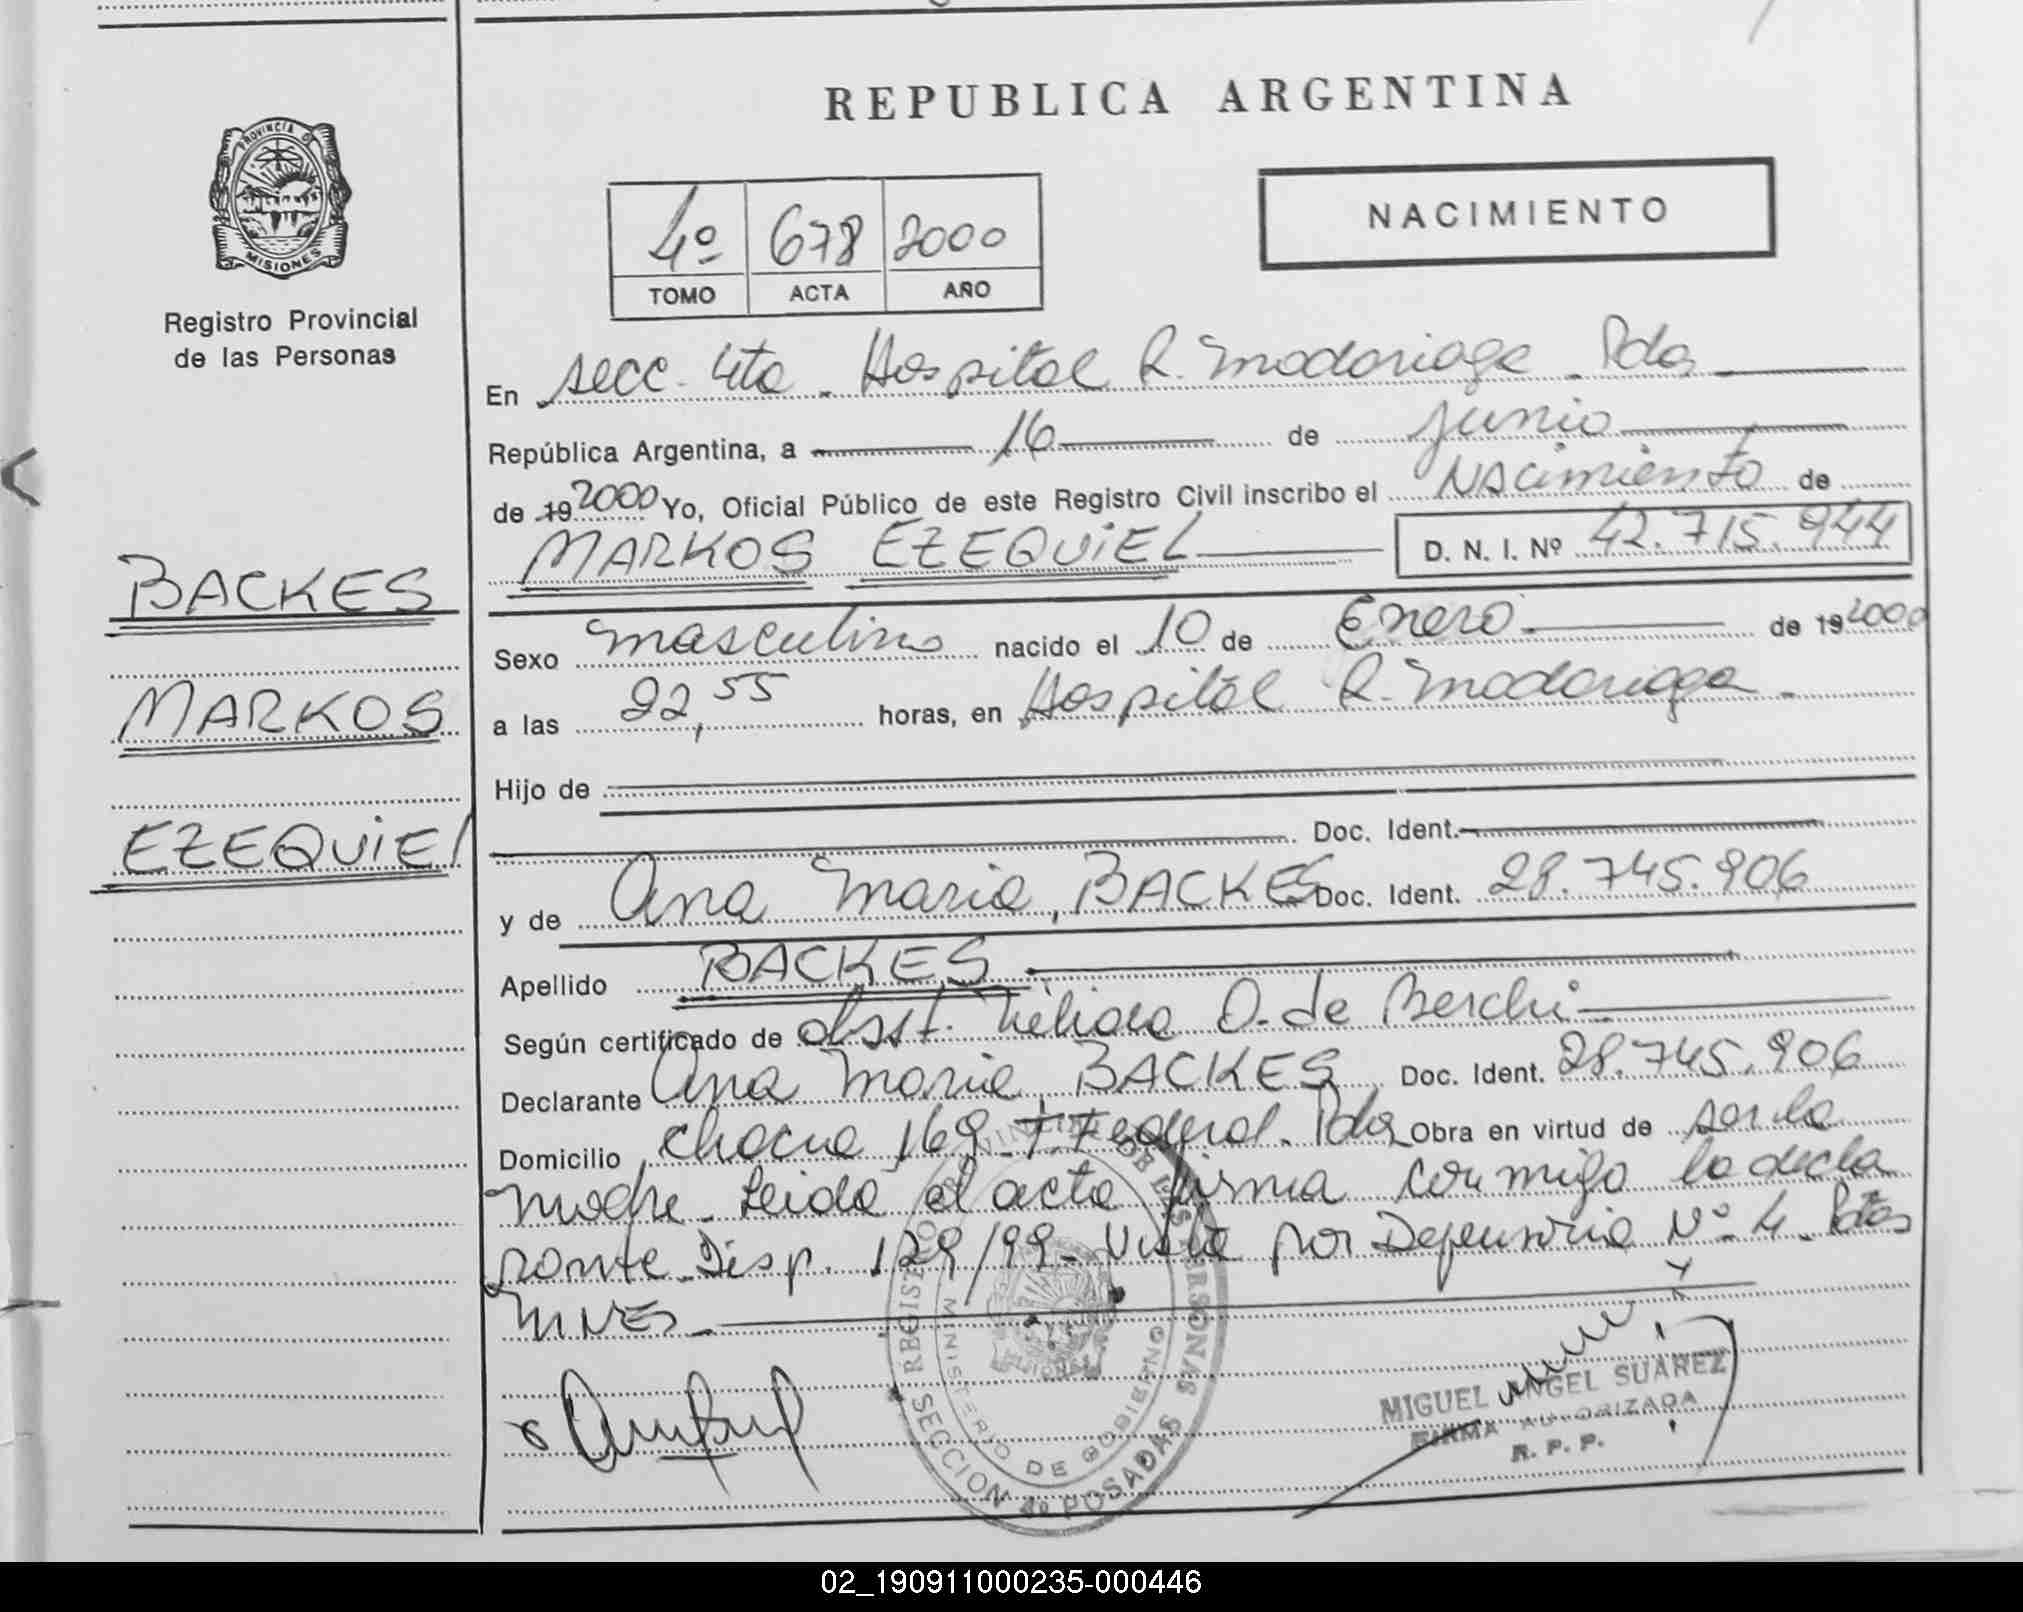 REPUBLICA ARGENTINA
PROVINCIA DE
MISIONES
Registro Provincial
de las Personas
4º 678 2000
TOMO ACTA AÑO
NACIMIENTO
En secc. 4ta. Hospital R. Madariaga. Pdas
República Argentina, a 16 de junio
de 19 2000 Yo, Oficial Público de este Registro Civil inscribo el NAcimiento de
MARKOS EZEQUIEL D. N. I. Nº 42.715.944
BACKES
MARKOS
EZEQUIEL
Sexo masculino nacido el 10 de Enero de 19 2000
a las 22,55 horas, en Hospital R. Madariaga.
Hijo de
Doc. Ident.
y de Ana Maria, BACKES Doc. Ident. 28.745.906
Apellido BACKES
Según certificado de obst. O. de Berchi
Declarante Ana Maria, BACKES Doc. Ident. 28.745.906
Domicilio chacra 169. T. Federal. Pdas Obra en virtud de ser la
madre. Leida el acta firma conmigo la decla
rante. Disp. 129/99. Vista por Defensoria Nº 4. Pdas
Mnes.
REGISTRO DE LAS PERSONAS
MINISTERIO DE GOBIERNO
SECCION 4º POSADAS
MIGUEL ANGEL SUAREZ
FIRMA AUTORIZADA
R. P. P.
02_190911000235-000446